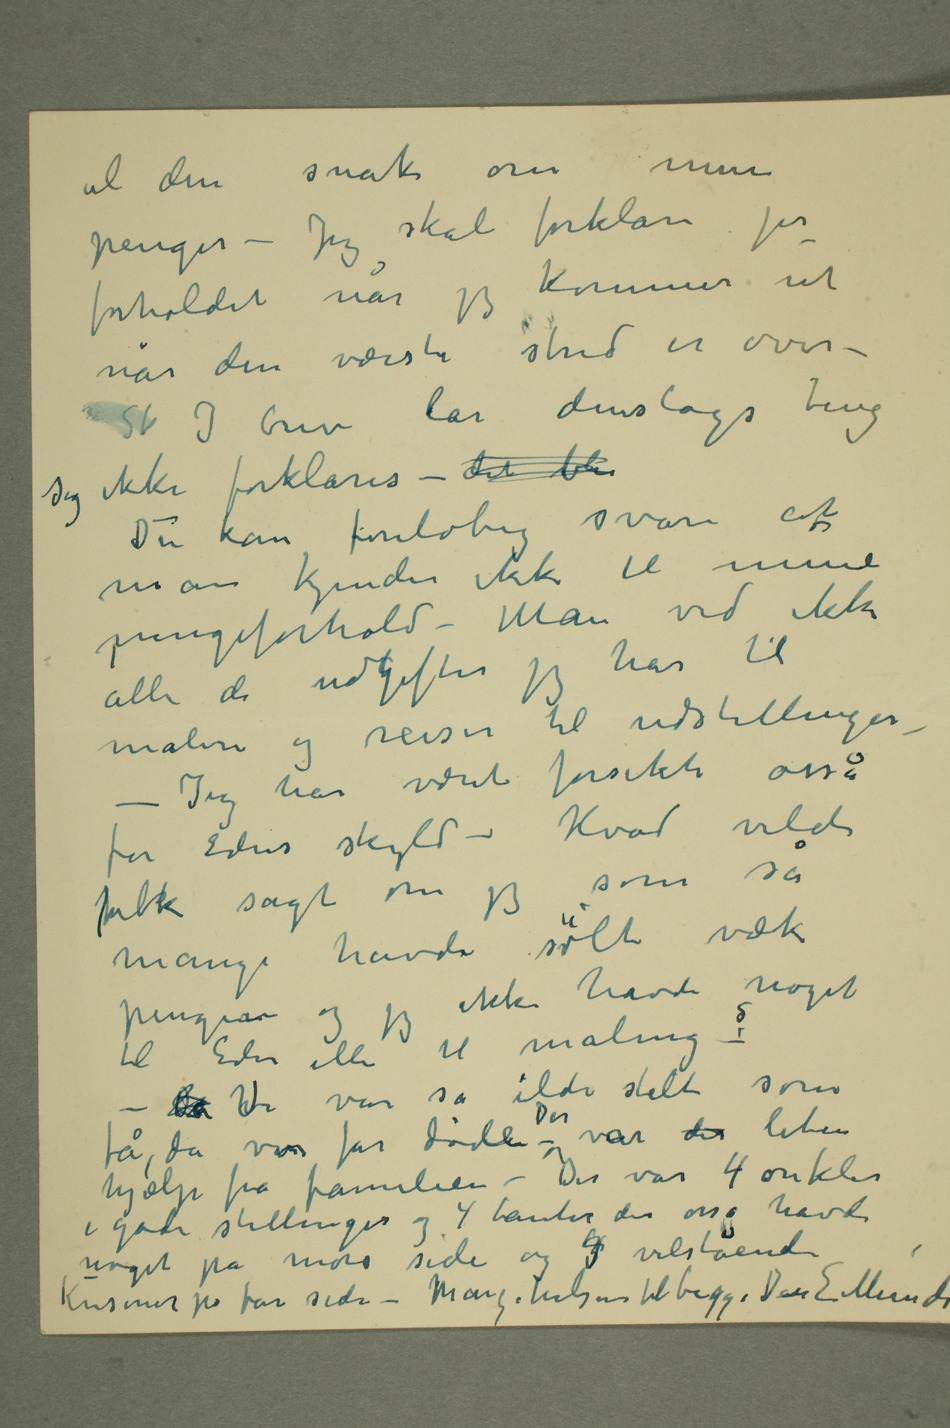 al den snak om mine
penger – Jeg skal forklare jer
forholdet når jeg kommer ut
når den værste strid er over –
St I brev lar denslags ting
sig ikke forklares – det ble
Du kan foreløbig svare at
man kjender ikke til mine
pengeforhold – Man ved ikke
alle de udgifter jeg har til
malere og reiser til udstillinger –
– Jeg har været forsikti osså
for Eders skyld – Hvad vilde
folk sagt om jeg som så
mange havde sølt væk
pengene og jeg ikke havde noget
til Eder eller til maling – ?
– Vi var så ilde stelt som
få, da vor far døde – Der var der liten
hjælp fra familien – Der var 4 onkler
i gode stillinger og 4 tanter der osså havde
noget på mors side og velstående
Kusiner på fars side – Mange hilsener til begge Deres E. Munch